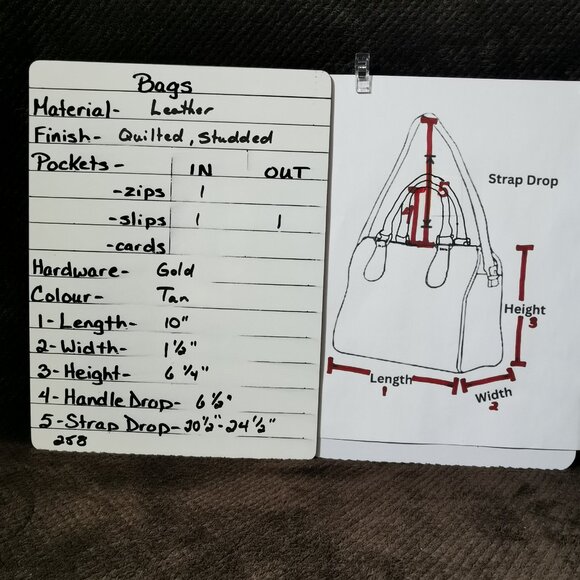 Bags
Material- Leather
Finish- Quilted, Studded
Pockets- IN OUT
-zips 1
-slips 1 1
-cards
Hardware- Gold
Colour- Tan
1-Length- 10"
2-Width- 1½"
3-Height- 6¼"
4-Handle Drop- 6½"
5-Strap Drop- 20½"-24½"
258
Strap Drop
5
4
Height
3
Length
1
Width
2